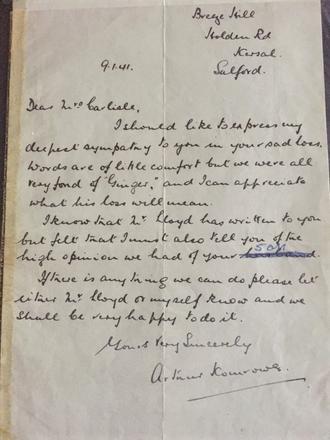 Breeze Hill
Holden Rd
Kersal
Salford.
9.1.41.
Dear Mrs Carlisle,
I should like to express my
deepest sympathy to you in your sad loss.
Words are of little comfort but we were all
very fond of "Ginger," and I can appreciate
what his loss will mean.
I know that Mr. Lloyd has written to you
but felt that I must also tell you of the
high opinion we had of your husband. son
If there is anything we can do please let
either Mr. Lloyd or myself know and we
shall be very happy to do it.
Yours Very Sincerely
Arthur